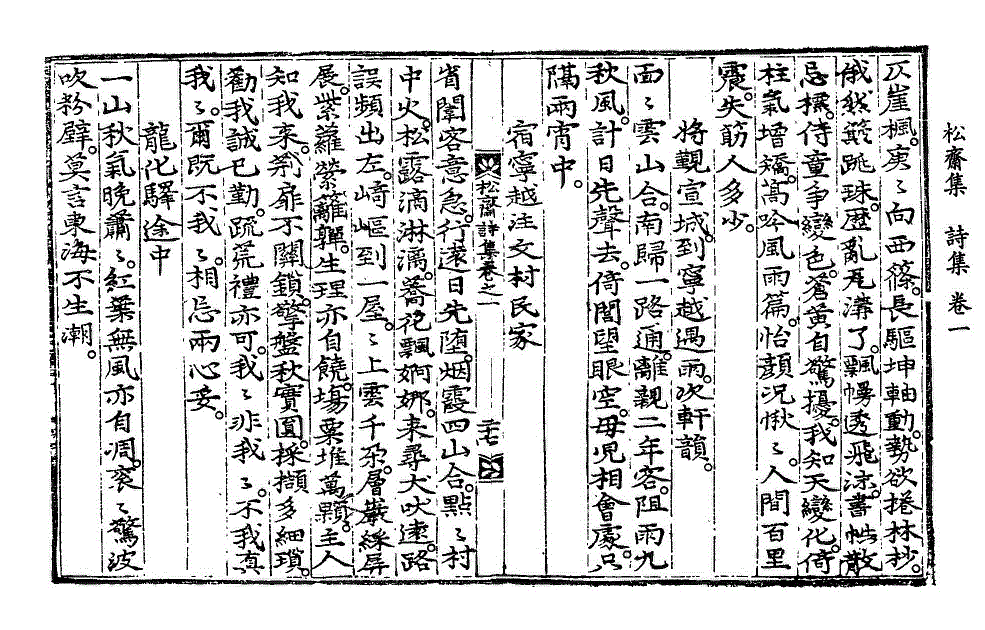 松齋集　詩集　卷一
仄崖楓。庚〻向西蓧。長驅坤軸動。勢欲捲林杪。
俄然簸跳珠。歷亂瓦溝了。飄幔透飛沫。書帙散
忘標。侍童爭變色。蒼黃自驚擾。我知天變化。倚
柱氣增矯。高吟風雨篇。怡顔況愀〻。人間百里
震。失筯人多少。
將覲宣城。到寧越遇雨。次軒韻。
面〻雲山合。南歸一路通。離親二年客。阻雨九
秋風。計日先聲去。倚閭望眼空。母兒相會處。只
隔雨宵中。
宿寧越注文村民家
松齋詩集卷之一
省闈客意急。行遠日先墮。烟霞四山合。點〻村
中火。松露滴淋漓。蕎花飄婀娜。來尋犬吠遠。路
誤頻出左。崎嶇到一屋。〻上雲千朶。層巖綵屛
展。紫蘿縈籬亸。生理亦自饒。場粟堆萬顆。主人
知我來。荊扉不關鎖。擎盤秋實圓。採擷多細瑣。
勸我誠已勤。疏荒禮亦可。我〻非我〻。不我眞
我〻。爾旣不我〻。相忘兩心妥。
龍化驛途中
一山秋氣晩肅〻。紅葉無風亦自凋。袞〻驚波
吹粉壁。莫言東海不生潮。